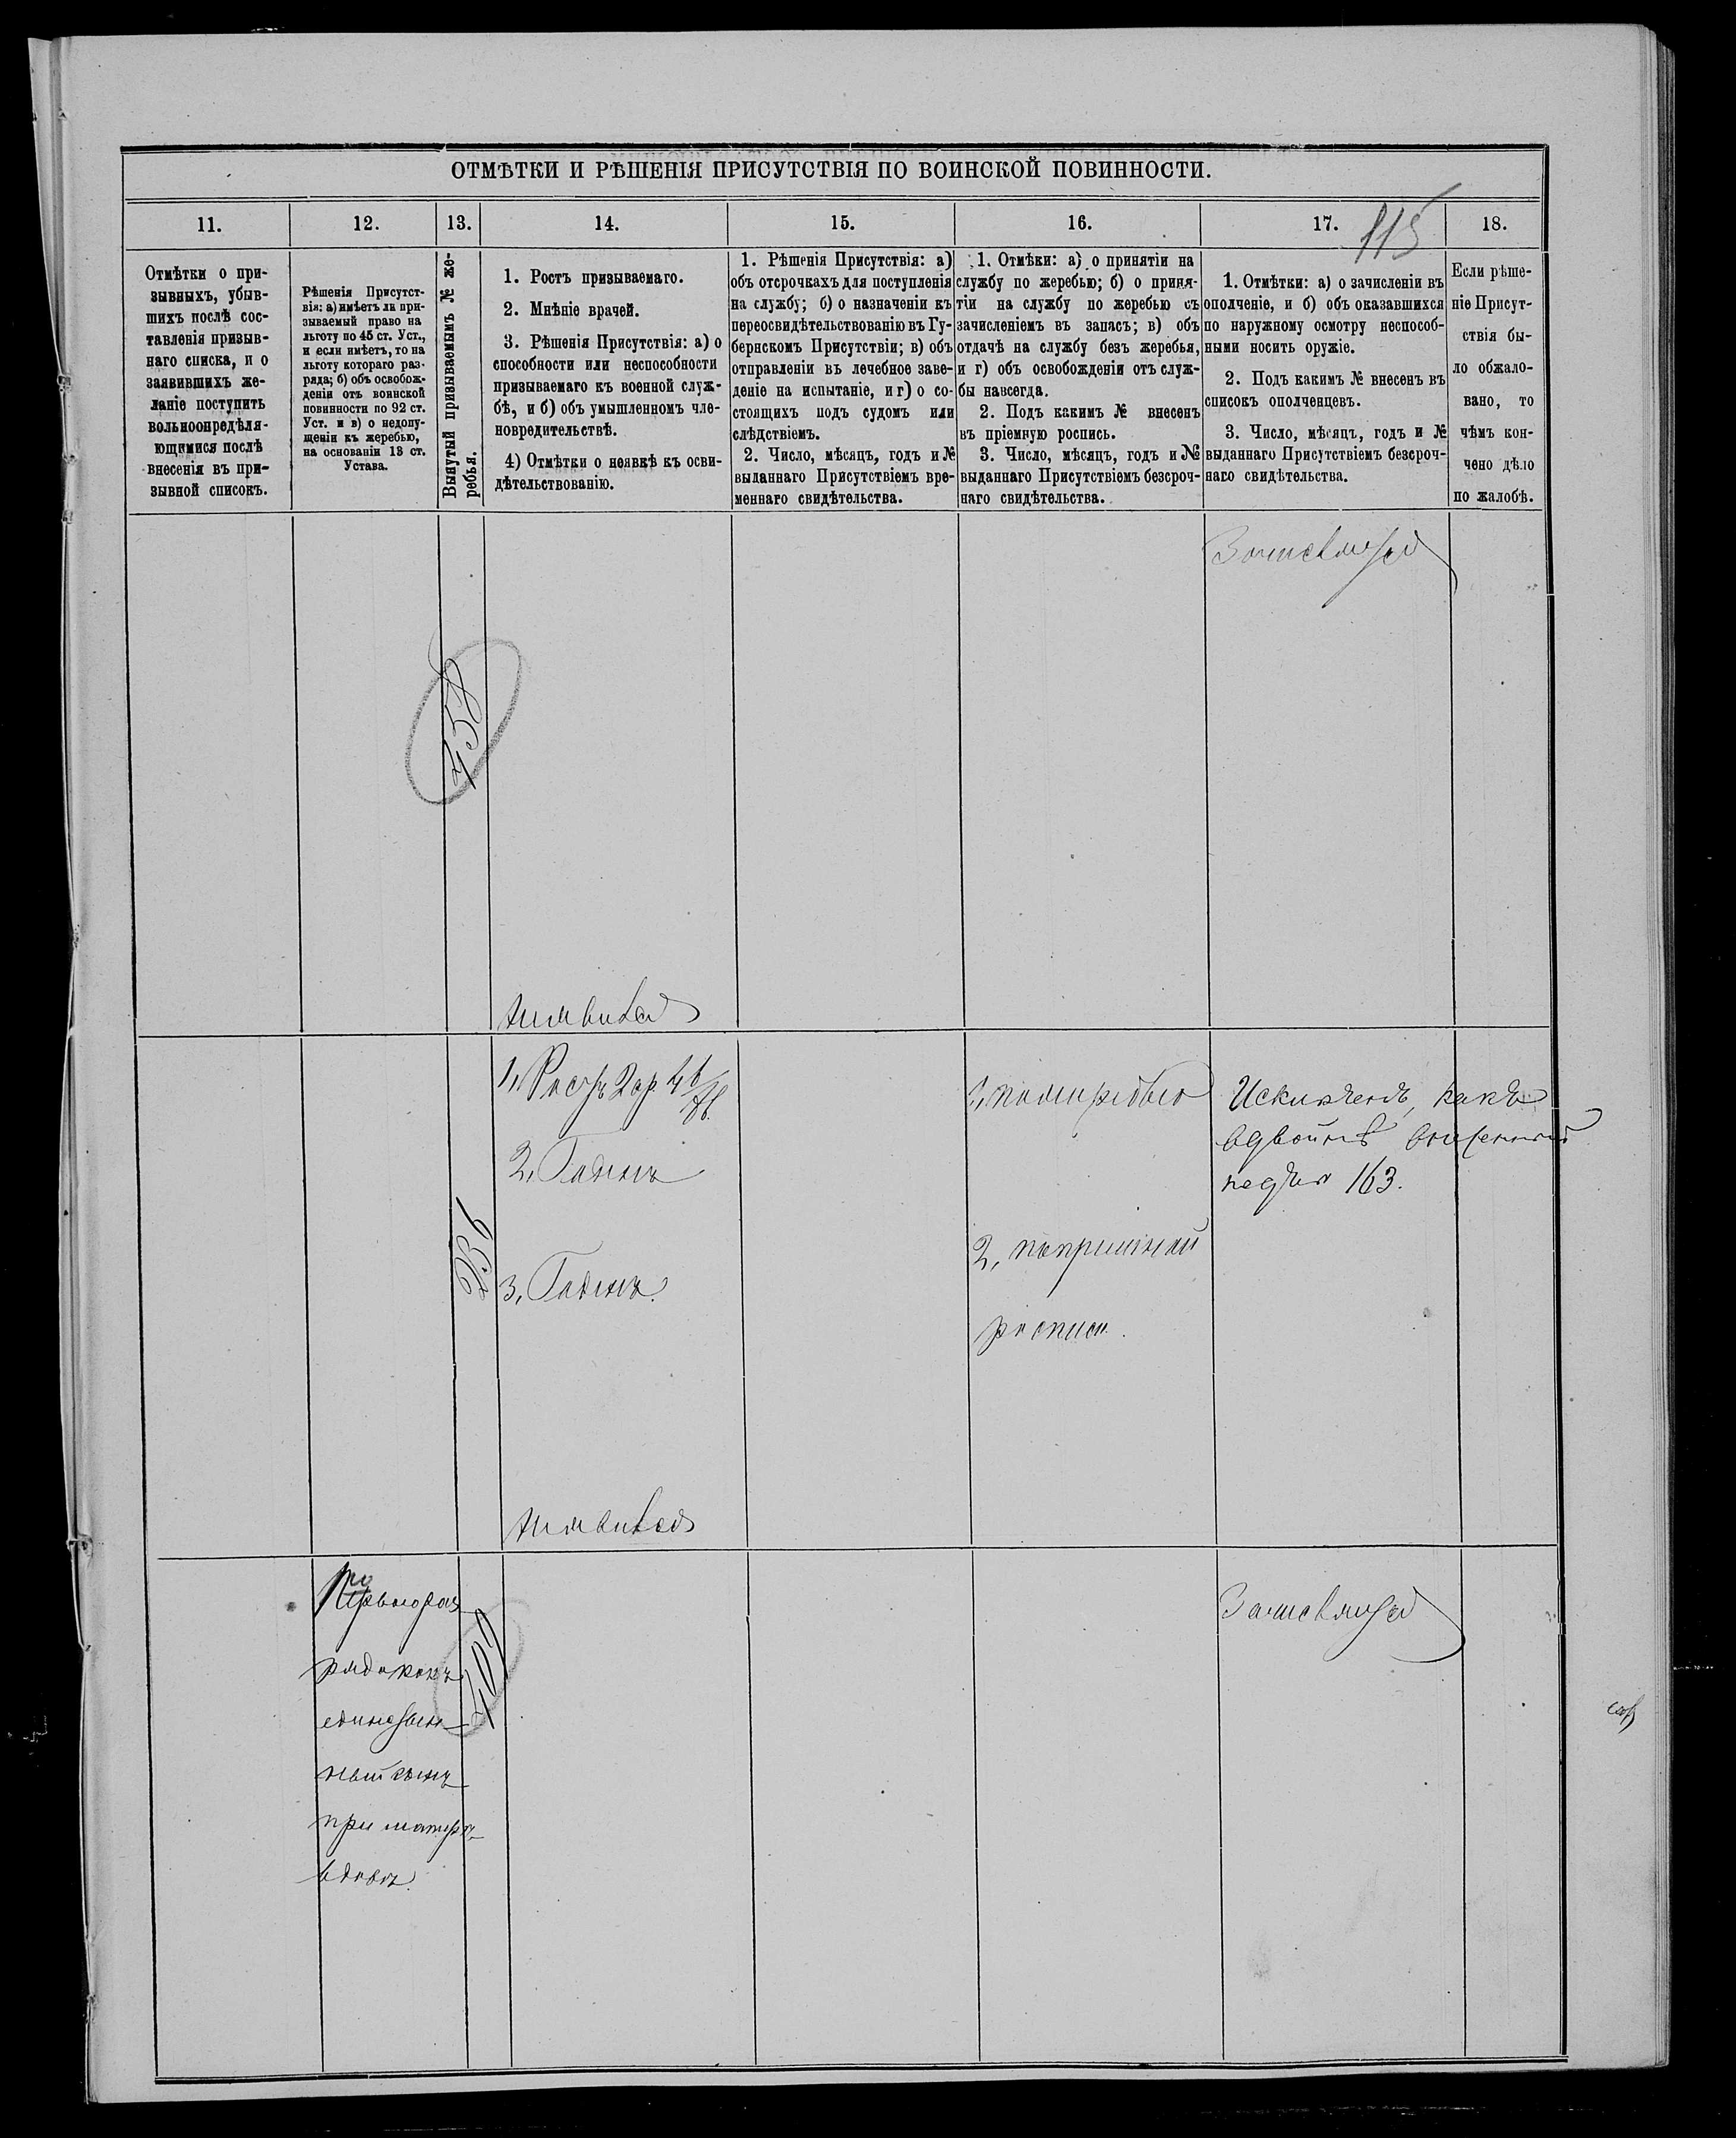 ОТМѢТКИ И РѢШЕНІЯ ПРИСУТСТВІЯ ПО ВОИНСКОЙ ПОВИННОСТИ.
115
11.
12.
13.
14.
15.
16.
17.
18.
Отмѣтки о при-
зывныхъ, убыв-
шихъ послѣ сос-
тавленія призыв-
наго списка, и о
заявившихъ же-
ланіе поступить
вольноопредѣля-
ющимися послѣ
внесенія въ при-
зывной списокъ.
Рѣшенія Присутст-
вія: а) имѣетъ ли при-
зываемый право на
льготу по 45 ст. Уст.,
и если имѣетъ, то на
льготу котораго раз-
ряда; б) объ освобож-
деніи отъ воинской
повинности по 92 ст.
Уст. и в) о недопу-
щеніи къ жеребью,
на основаніи 13 ст.
Устава.
Вынутый призываемымъ № же-
ребья.
1. Ростъ призываемаго.
2. Мнѣніе врачей.
3. Рѣшенія Присутствія: а) о
способности или неспособности
призываемаго къ военной служ-
бѣ, и б) объ умышленномъ чле-
новредительствѣ.
4) Отмѣтки о неявкѣ къ осви-
дѣтельствованію.
1. Рѣшенія Присутствія: а)
объ отсрочкахъ для поступленія
на службу; б) о назначеніи къ
переосвидѣтельствованію въ Гу-
бернскомъ Присутствіи; в) объ
отправленіи въ лечебное заве-
деніе на испытаніе, и г) о со-
стоящихъ подъ судомъ или
слѣдствіемъ.
2. Число, мѣсяцъ, годъ и №
выданнаго Присутствіемъ вре-
меннаго свидѣтельства.
1. Отмѣки: а) о принятіи на
службу по жеребью; б) о приня-
тіи на службу по жеребью съ
зачисленіемъ въ запасъ; в) объ
отдачѣ на службу безъ жеребья,
и г) объ освобожденіи отъ служ-
бы навсегда.
2. Подъ какимъ № внесенъ
въ пріемную роспись.
3. Число, мѣсяцъ, годъ и №
выданнаго Присутствіемъ безсроч-
наго свидѣтельства.
1. Отмѣтки: а) о зачисленіи въ
ополченіе, и б) объ оказавшихся
по наружному осмотру неспособ-
ными носить оружіе.
2. Подъ какимъ № внесенъ въ
списокъ ополченцевъ.
3. Число, мѣсяцъ, годъ и №
выданнаго Присутствіемъ безсроч-
наго свидѣтельства.
Если рѣше-
ніе Присут-
ствія бы-
ло обжало-
вано, то
чѣмъ кон-
чено дѣло
по жалобѣ.
458
236
1, Ростъ 2 ар 4 6/8 в.
2, Годенъ
3, Годенъ.
2, по пріемной
росписи.
Исключенъ, какъ
вдвойнѣ внесенный
подъ № 163.
Перваго раз
ряда какъ
единствен-
ный сынъ
при матери
вдовѣ.
409